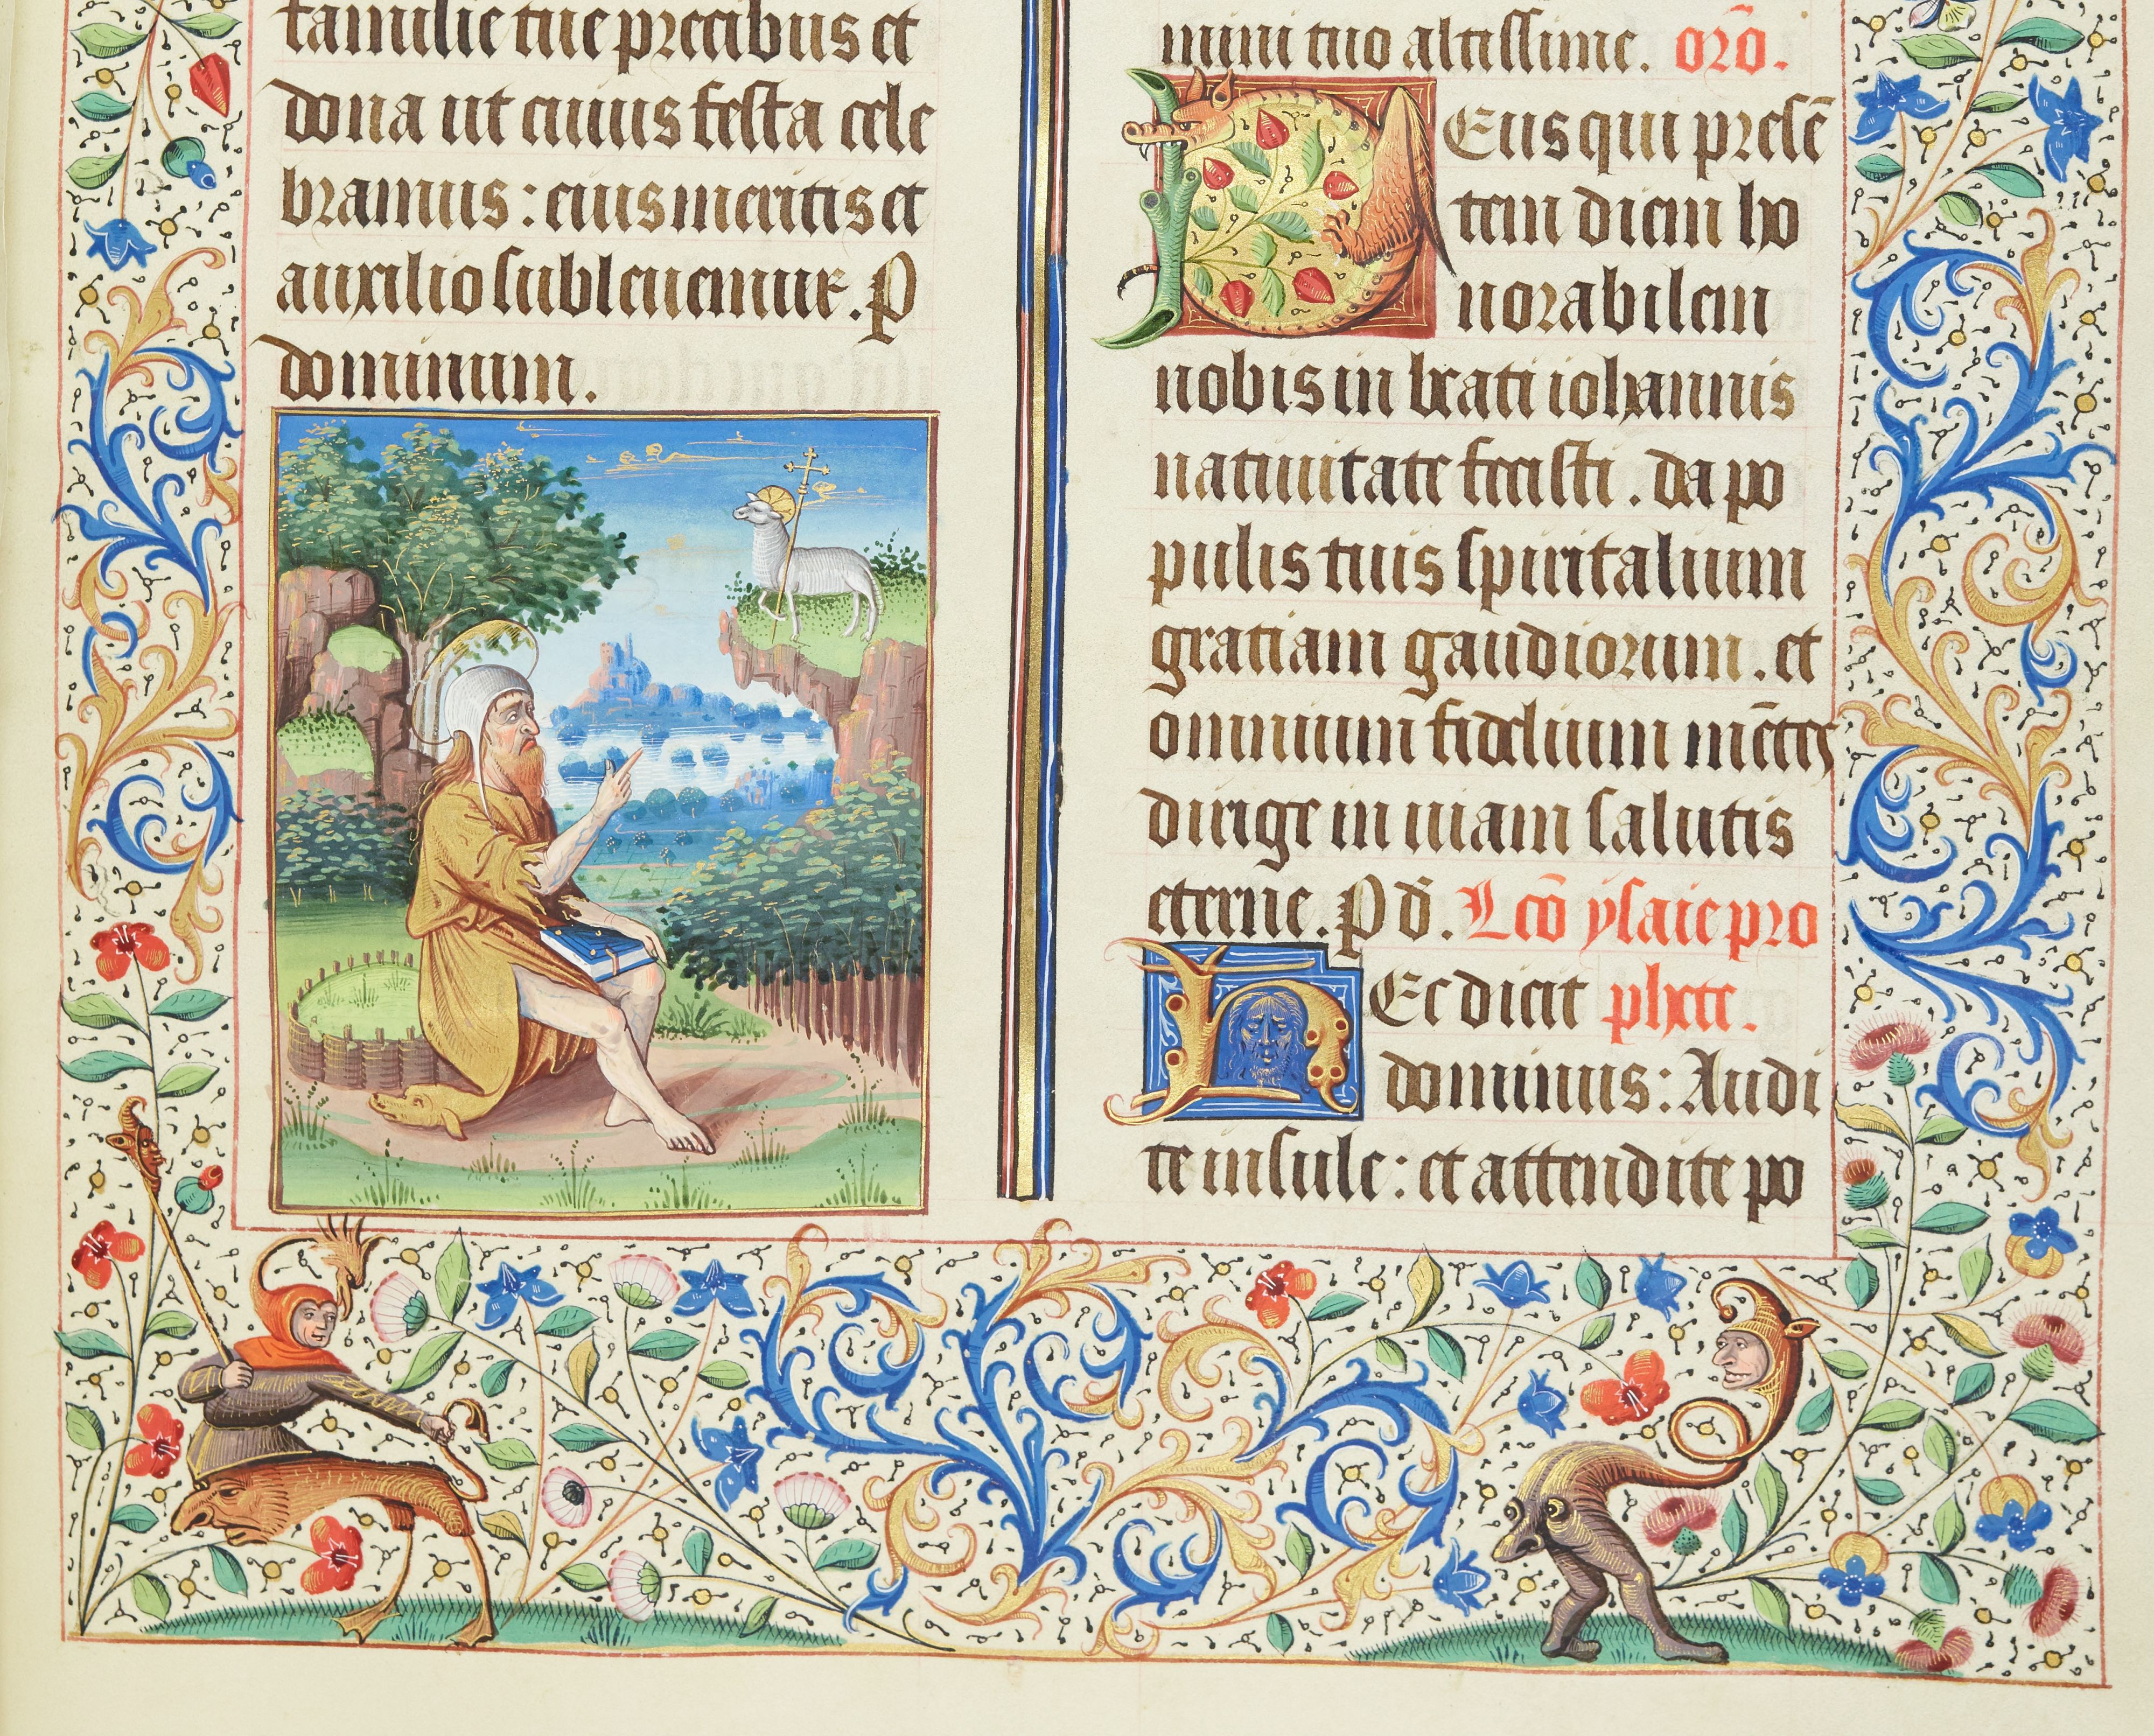 familie tue precibus et
dona ut cuius festa cele
bramus : eius meritis et
auxilio subleuemur . P
dominum .
mini tuo altissime . oro͂ .
DEus qui presē
tem diem ho
norabilem
nobis in beati iohannis
natiuitate fecisti . da po
pulis tuis spiritalium
gratiam gaudiorum . et
omnium fidelium mētes
dirige in uiam salutis
eterne . P d̄ . Lc͂o ysaie pro
hEc dicit phete .
dominus : Audi
te insule : et attendite po